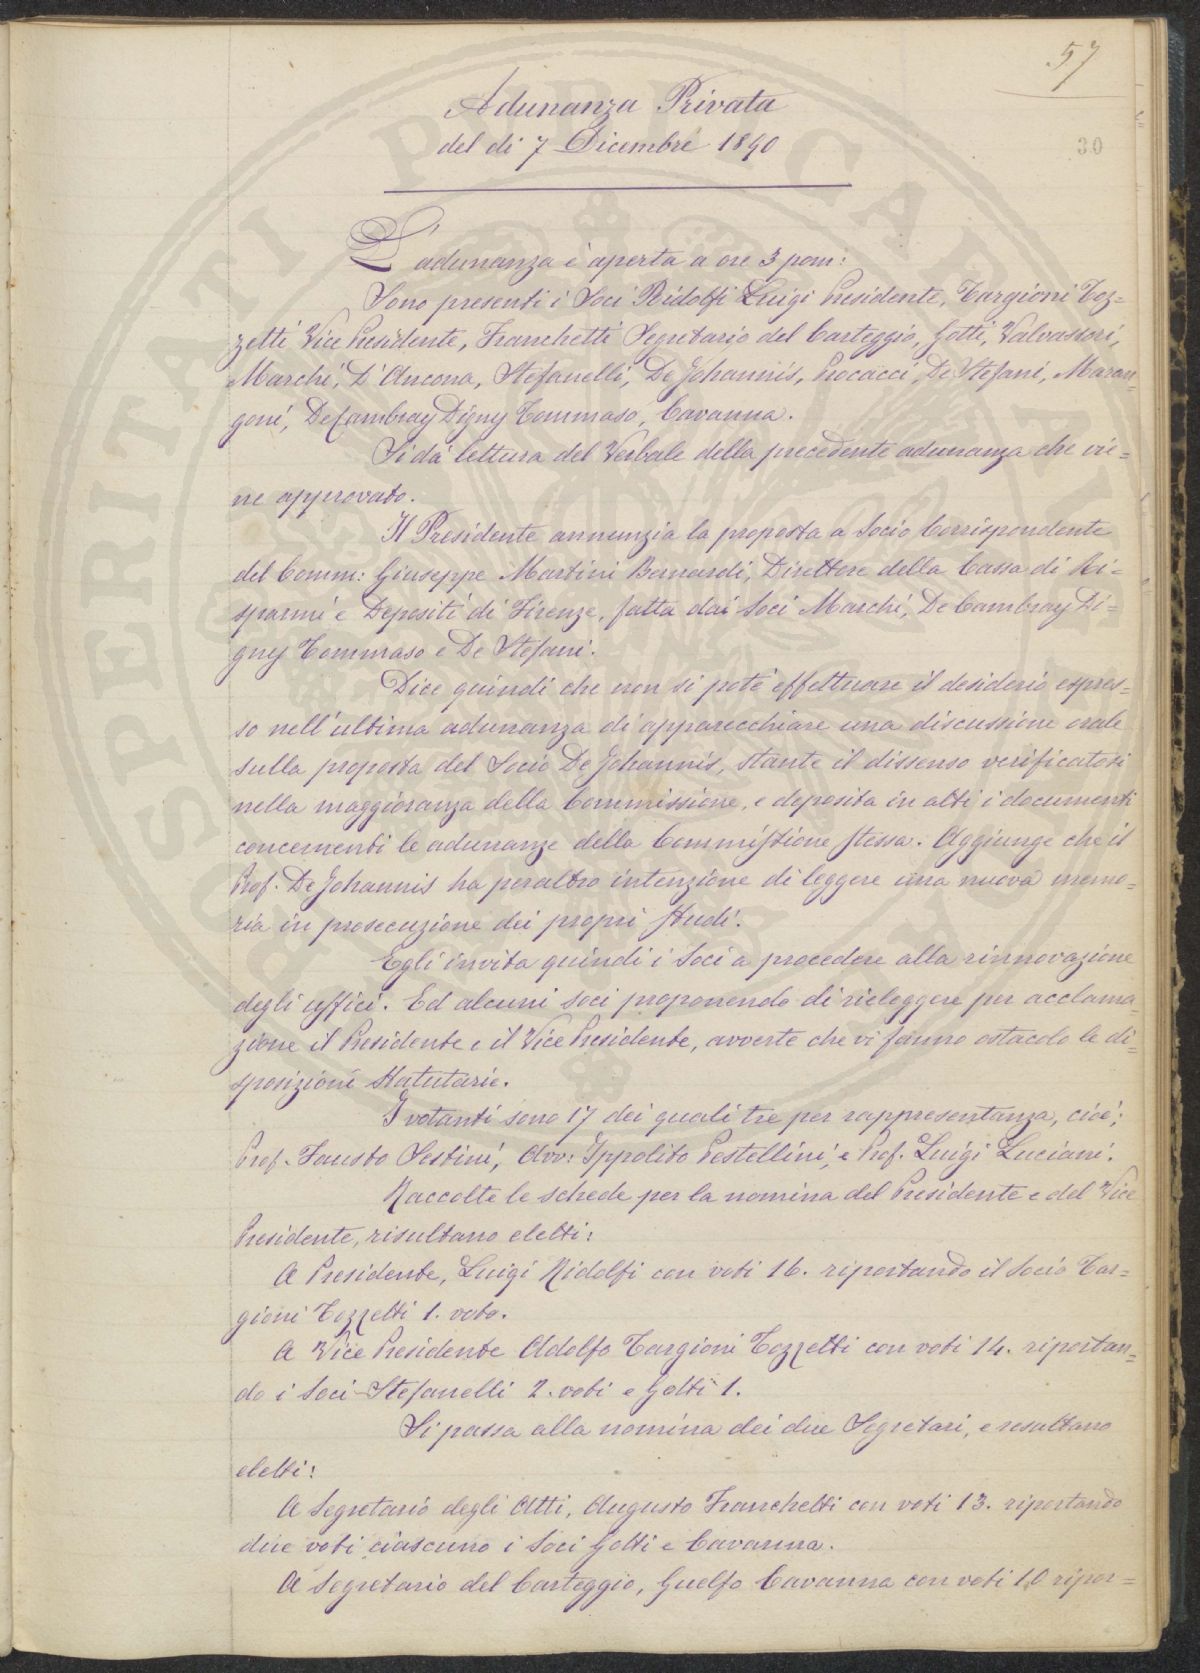 57
30
Adunanza Privata
del dì 7 Dicembre 1890
L'adunanza è aperta a ore 3 pom:
Sono presenti i Soci Ridolfi Luigi Presidente, Targioni Toz=
zetti Vice Presidente, Franchetti Segretario del Carteggio, Gotti, Valvassori,
Marchi, D'Ancona, Stefanelli, De Johannis, Procacci, De Stefani, Maran=
goni, De Cambray Digny Tommaso, Cavanna.
Si dà lettura del Verbale della precedente adunanza che vie=
ne approvato.
Il Presidente annunzia la proposta a Socio Corrispondente
del Comm: Giuseppe Martini Bernardi, Direttore della Cassa di Ri=
sparmi e Depositi di Firenze, fatta dai Soci Marchi, De Cambray Di=
gny Tommaso e De Stefani.
Dice quindi che non si potè effettuare il desiderio espres=
so nell'ultima adunanza di apparecchiare una discussione orale
sulla proposta del Socio De Johannis, stante il dissenso verificatosi
nella maggioranza della Commissione, e deposita in atti i documenti
concernenti le adunanze della Commissione stessa. Aggiunge che il
Prof. De Johannis ha peraltro intenzione di leggere una nuova memo=
ria in prosecuzione dei propri studi.
Egli invita quindi i Soci a procedere alla rinnovazione
degli uffici. Ed alcuni soci proponendo di rieleggere per acclama
zione il Presidente e il Vice Presidente, avverte che vi fanno ostacolo le di=
sposizioni Statutarie.
I votanti sono 17 dei quali tre per rappresentanza, cioè;
Prof. Fausto Sestini, Avv: Ippolito Pestellini, e Prof. Luigi Luciani.
Raccolte le schede per la nomina del Presidente e del Vice
Presidente, risultano eletti:
A Presidente, Luigi Ridolfi con voti 16. riportando il Socio Tar=
gioni Tozzetti 1. voto.
A Vice Presidente Adolfo Targioni Tozzetti con voti 14. riportan=
do i Soci Stefanelli 2. voti e Gotti 1.
Si passa alla nomina dei due Segretari, e resultano
eletti:
A Segretario degli Atti, Augusto Franchetti con voti 13. riportando
due voti ciascuno i Soci Gotti e Cavanna.
A Segretario del Carteggio, Guelfo Cavanna con voti 10 ripor=